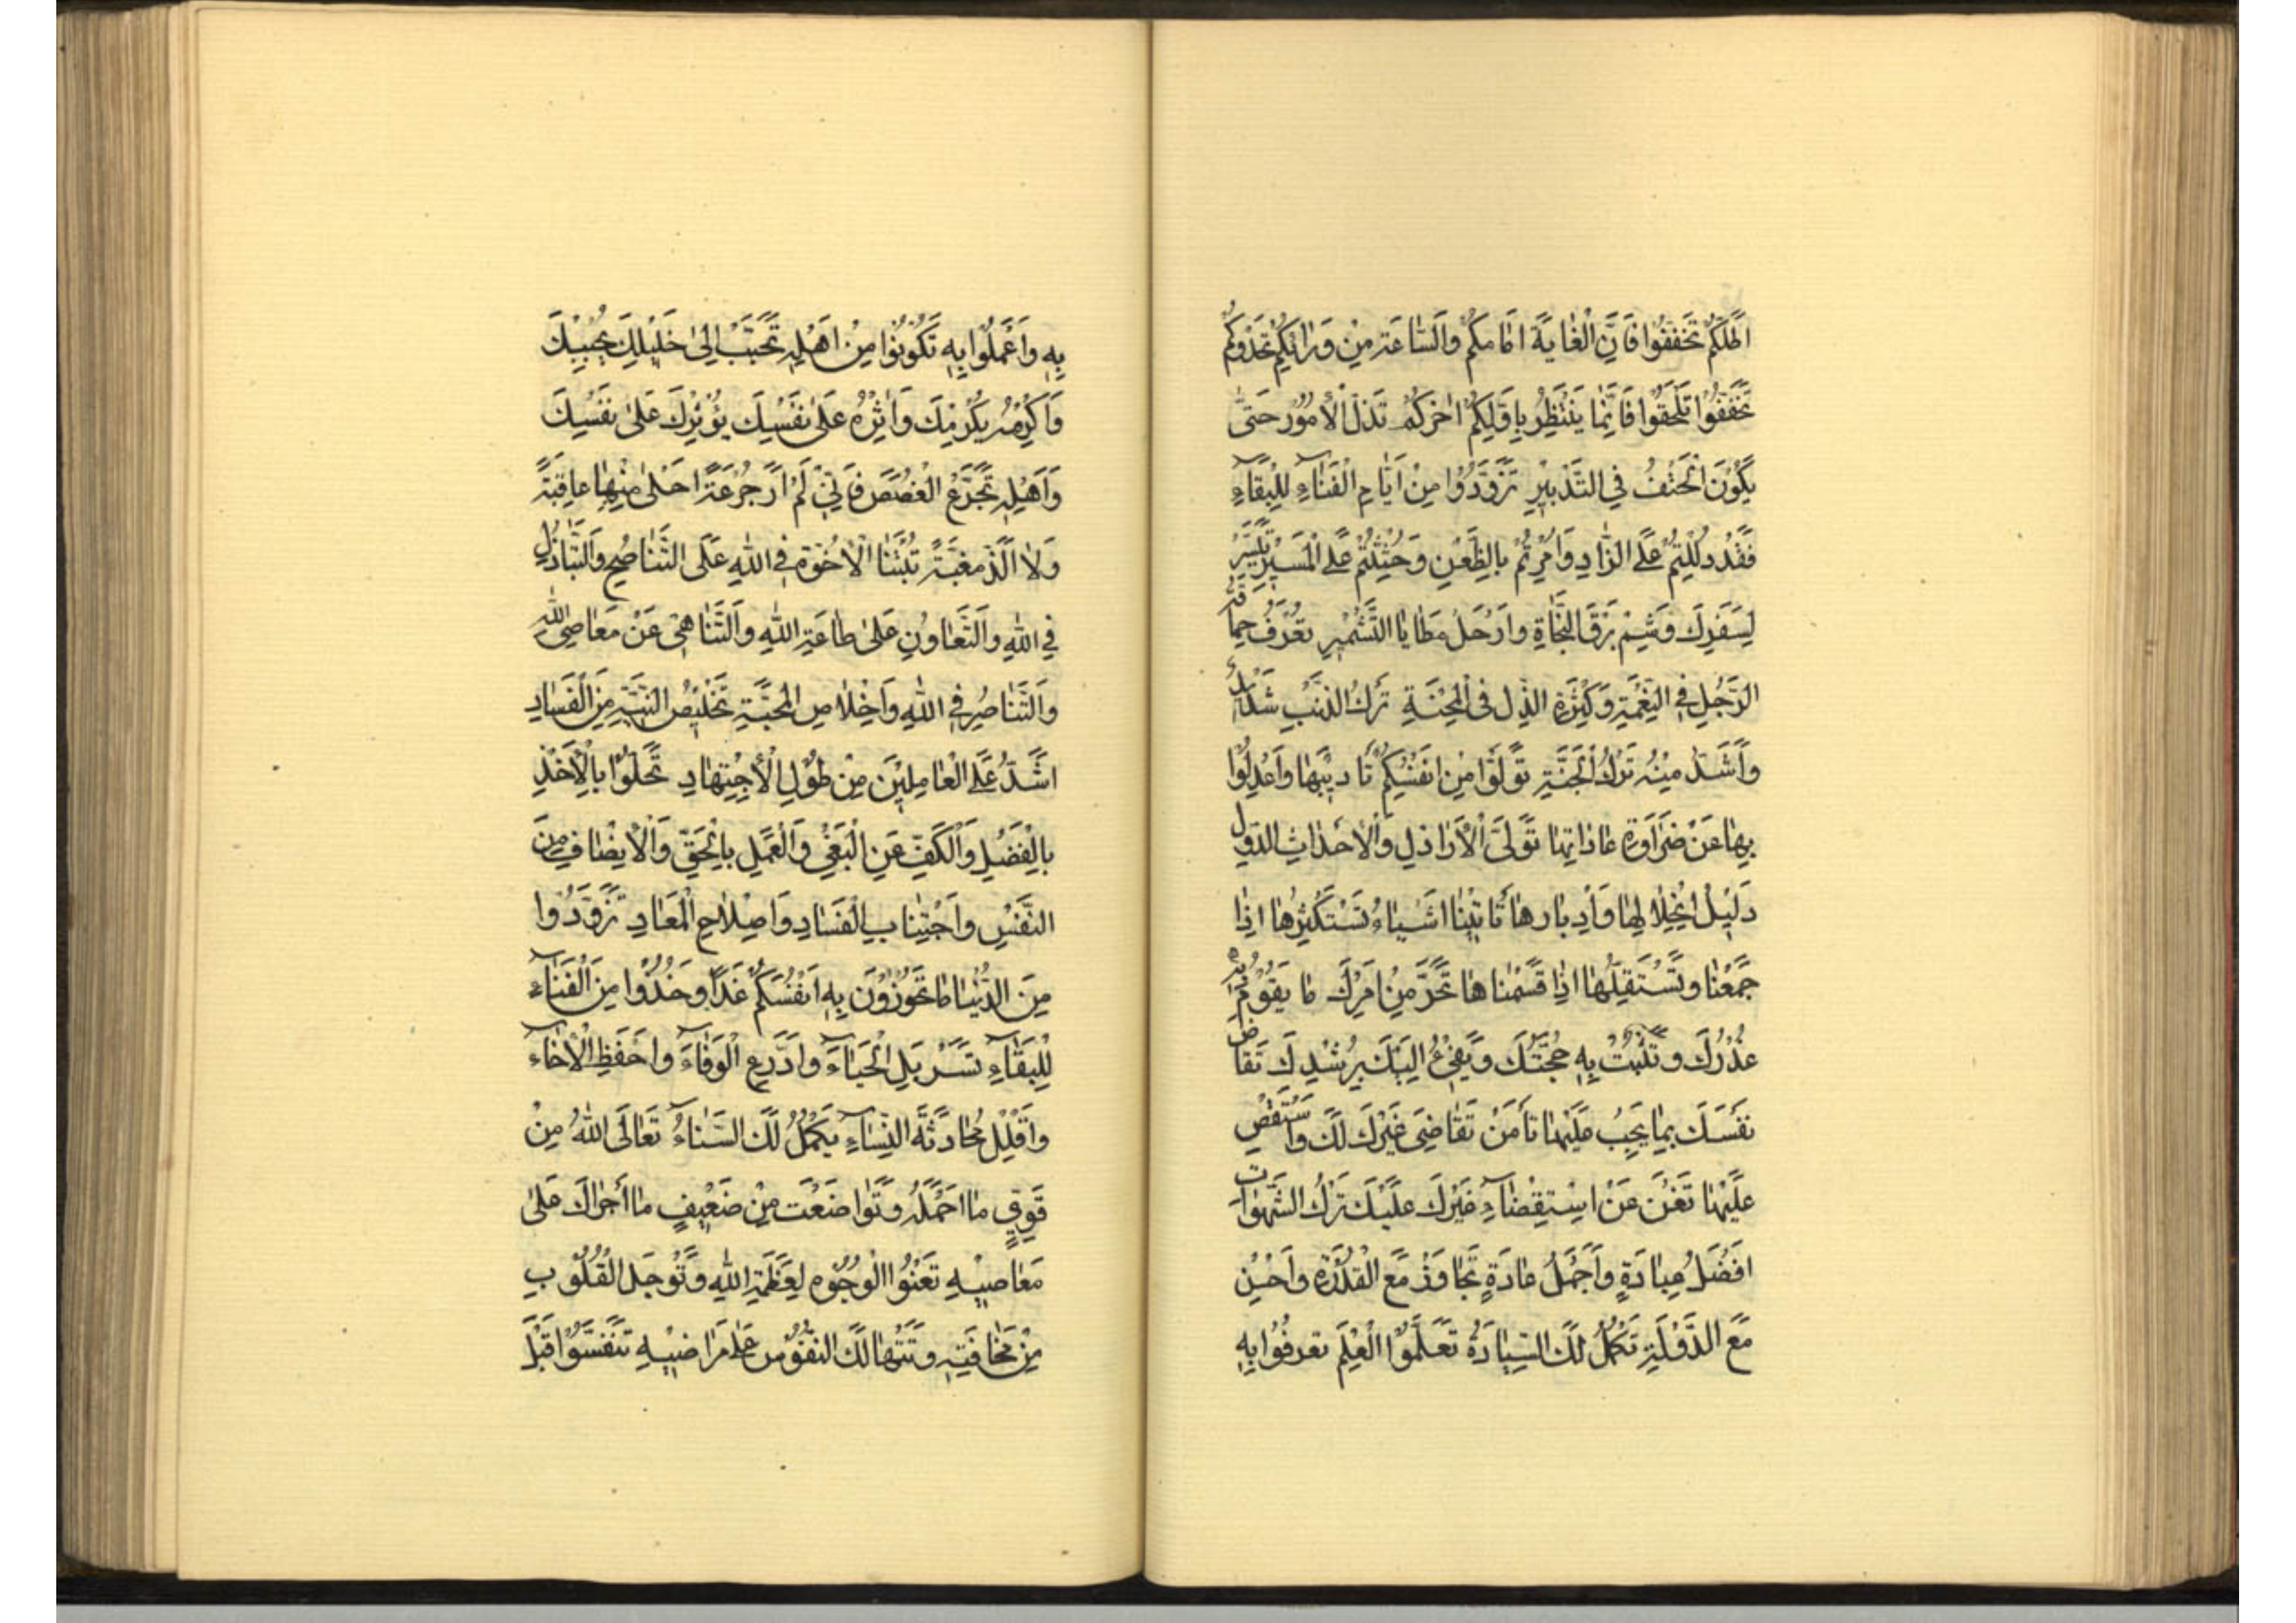 اظلكم تَخَفَّفُوا فَاِنَّ الْغايَةَ امامكم والسّاعَة مِنْ وَرائكم تحدوكم
تَخَفَّفُوا تَلْحَقُوا فَاِنَّما يَنْتَظِرُ بِاَوَّلِكُمْ اخركم تَذلّ الْامُور حَتّى
يَكُونَ الْحَتْفُ فى التَّدْبيرِ تَزَوَّدُوا مِنْ اَيّامِ الْفَناءِ لِلْبَقاءِ
فَقَدْ دُلِلْتُمْ عَلَى الزّادِ وَاُمِرْتُمْ بِالظَّعْنِ وَحُثِثْتُمْ عَلَى الْمَسيرِ تَيَسَّرْ
لِسَفَرِكَ وَشِمْ بَرْقَ النَّجاةِ وارْحَلْ مَطايا التَّشْميرِ تعْرَفُ حماقة
الرَّجُلِ فى النِّعْمَةِ وَكَثْرَةِ الذّل فى الْمِحْنَةِ تَركُ الذَنْبِ شَديدٌ
وَاَشَدّ مِنْهُ تَرْكُ الْجَنَّةِ تَوَلَّوْا مِنْ انْفُسِكُمْ تَاْديبَها وَاعْدِلُوا
بِها عَنْ ضَراوَةِ عاداتِها تَوَلّى الْاَراذلِ والْاحداثِ الدّوَل
دَليلُ انْحِلالِها وَاِدْبارها تَاْتينا اشْياءُ نَسْتَكْثِرُها اِذا
جَمَعْنا وتَسْتَقِلّها اذا قَسَمْناها تَحَرَّ مِنْ امْرِكَ ما يَقُوْمُ به
عُذْرُكَ وتَثْبُتُ بِهِ حُجَّتُكَ وَيَفىءُ اِلَيْكَ بِرُشْدِكَ تَقاضَ
نفْسَكَ بِما يَجِبُ عَلَيْها تَأمَنْ تَقاضِىَ غَيْرِكَ لَكَ وَاسْتَقْصِ
عَلَيْها تَغْنَ عَنْ اسْتِقْصاءِ غَيْرِكَ عَلَيْكَ تَرْكُ الشّهَواتِ
افْضَلُ عِبادَةٍ وَاَجْمَلُ عادَةٍ تَجاوَزْ مَعَ الْقُدْرَةِ وَاَحْسِن
مَعَ الدَّوْلَةِ تَكْمُلُ لَكَ السِّيادَةُ تَعَلَّمُوا الْعِلْمَ تعرفُوا بِهِ
بِهِ وَاعْمَلُوا بِهِ تَكُونُوا مِنْ اهْلِهِ تَحَبَّبْ اِلى خَليلِكَ يُحْبِبْكَ
وَاَكْرِمْهُ يُكْرِمْكَ وَاٰثِرْهُ عَلى نَفْسِكَ يُؤْثِرْكَ عَلى نَفْسِكَ
وَاَهْلِه تَجَرَّعِ الْغُصَصَ فَاِنّى لَمْ اَرَ جُرْعَةً احْلى مِنْها عاقِبَةً
وَلا اَلَذّ مغبَّةً تُبْتَنَا الْاُخُوّة فى اللهِ عَلَى التَّناصُحِ وَالتَّباذُلِ
فى اللهِ والتَّعاوُنِ عَلى طاعَةِ اللهِ وَالتَّناهى عَنْ مَعاصِى الله
وَالتَّناصُرِ فى اللهِ وَاِخْلاصِ الْمَحَبَّةِ تَخْليصُ النِيَّةِ مِنَ الْفَسادِ
اشَدُّ عَلَى الْعامِلينَ مِنْ طُوْلِ الْاجْتِهادِ تَحَلَّوْا بِالْاَخْذِ
بِالْفَضْلِ وَالْكَفِّ عَنِ الْبَغْىِ وَالْعَمَلِ بِالْحَقِّ وَالْانْصافِ مِنَ
النَّفْسِ وَاجْتِنابِ الْفَسادِ وَاِصْلاحِ الْمَعادِ تَزَوَّدُوا
مِنَ الدُّنْيا ما تَحُوزُونَ بِهِ اَنْفُسَكُمْ غَدًا وَخُذُوا مِنَ الْفَناءِ
لِلْبَقاءِ تَسَرْبَلِ الْحَياءَ وادَّرِعِ الْوَفاءَ واحْفَظِ الْاخاءَ
وَاَقْلِلْ مُحادَثَةَ النِّساءِ يَكْمُلْ لَكَ السَّناءُ تَعالَى اللهُ مِنْ
قَوِىٍّ ما احْلَمَهُ وتَواضَعْتَ مِنْ ضَعيفٍ ما اَجْراكَ عَلى
مَعاصيهِ تَعْنُوا الْوُجُوه لِعَظَمَةِ اللهِ وَتَوْجَلُ الْقُلُوب
مِنْ مَخافَتِهِ وتَتَهالَكُ النّفُوس عَلى مَراضيهِ تَنَفَّسُوا قَبْلَ